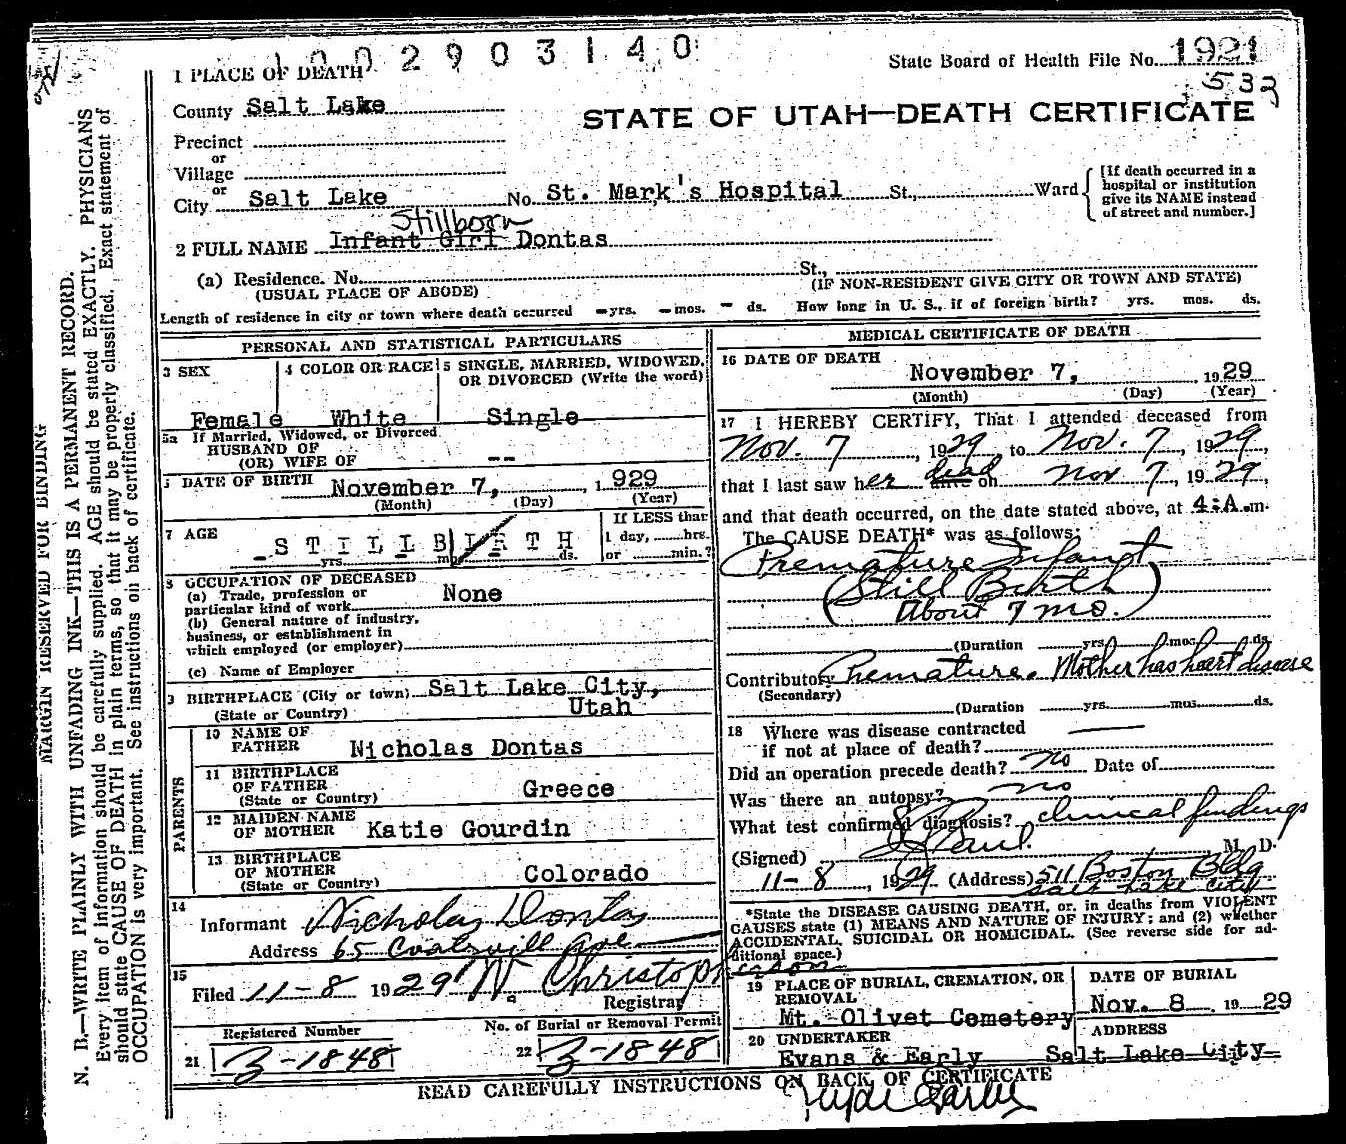 1002903140
State Board of Health File No. 1921
533
1 PLACE OF DEATH
County Salt Lake
STATE OF UTAH—DEATH CERTIFICATE
Precinct
or
Village
or
City Salt Lake No. St. Mark's Hospital St., Ward
[If death occurred in a
hospital or institution
give its NAME instead
of street and number.]
Stillborn
2 FULL NAME Infant Girl Dontas
(a) Residence. No. St.,
(USUAL PLACE OF ABODE) (IF NON-RESIDENT GIVE CITY OR TOWN AND STATE)
Length of residence in city or town where death occurred - yrs. - mos. - ds. How long in U. S., if of foreign birth? yrs. mos. ds.
PERSONAL AND STATISTICAL PARTICULARS
3 SEX
4 COLOR OR RACE
5 SINGLE, MARRIED, WIDOWED,
OR DIVORCED (Write the word)
Female White Single
5a If Married, Widowed, or Divorced
HUSBAND OF
(OR) WIFE OF --
DATE OF BIRTH November 7, 1929
(Month) (Day) (Year)
7 AGE
- STILLBIRTH
yrs. mos. ds.
If LESS than
1 day, hrs.
or min.?
8 OCCUPATION OF DECEASED
(a) Trade, profession or
particular kind of work None
(b) General nature of industry,
business, or establishment in
which employed (or employer)
(c) Name of Employer
9 BIRTHPLACE (City or town) Salt Lake City,
(State or Country) Utah
PARENTS
10 NAME OF
FATHER Nicholas Dontas
11 BIRTHPLACE
OF FATHER
(State or Country) Greece
12 MAIDEN NAME
OF MOTHER Katie Gourdin
13 BIRTHPLACE
OF MOTHER
(State or Country) Colorado
14
Informant Nicholas Dontas
Address 65 Ave
15
Filed 11-8 1929 W. Christopherson
Registrar
Registered Number
21 Z-1848
No. of Burial or Removal Permit
22 Z-1848
MEDICAL CERTIFICATE OF DEATH
16 DATE OF DEATH
November 7, 1929
(Month) (Day) (Year)
17 I HEREBY CERTIFY, That I attended deceased from
Nov. 7, 1929 to Nov. 7, 1929,
that I last saw her alive dead on Nov 7, 1929,
and that death occurred, on the date stated above, at 4:A.m.
The CAUSE DEATH* was as follows:
Premature Infant
(Still Birth
About 7 mo.)
(Duration yrs. mos. ds.
Contributory Premature. Mother has heart disease
(Secondary)
(Duration yrs. mos. ds.
18 Where was disease contracted
if not at place of death?
Did an operation precede death? No Date of
Was there an autopsy? no
What test confirmed diagnosis? clinical findings
(Signed) Paul M. D.
11-8, 1929 (Address) 511 Boston Bldg
Salt Lake City
*State the DISEASE CAUSING DEATH, or, in deaths from VIOLENT
CAUSES state (1) MEANS AND NATURE OF INJURY; and (2) whether
ACCIDENTAL, SUICIDAL OR HOMICIDAL. (See reverse side for ad-
ditional space.)
19 PLACE OF BURIAL, CREMATION, OR
REMOVAL
Mt. Olivet Cemetery
DATE OF BURIAL
Nov. 8, 1929
20 UNDERTAKER
Evans & Early
ADDRESS
Salt Lake City
READ CAREFULLY INSTRUCTIONS ON BACK OF CERTIFICATE
Clyde Early
MARGIN RESERVED FOR BINDING
N. B.—WRITE PLAINLY WITH UNFADING INK—THIS IS A PERMANENT RECORD.
Every item of information should be carefully supplied. AGE should be stated EXACTLY. PHYSICIANS
should state CAUSE OF DEATH in plain terms, so that it may be properly classified. Exact statement of
OCCUPATION is very important. See instructions on back of certificate.